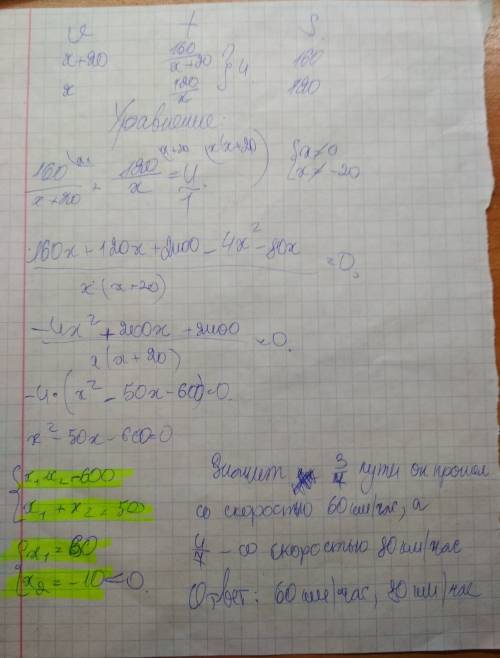 v t S
x+20 160/(x+20) } 4 160
x 120/x 120
Уравнение:
160/(x+20) + 120/x = 4/1 { x≠0
x+20 x(x+20) x≠-20
160x+120x+2400-4x²-80x / x(x+20) =0,
-4x²+200x+2400 / x(x+20) =0.
-4·(x²-50x-600)=0.
x²-50x-600=0
{ x₁x₂=-600
x₁+x₂=50
x₁=60
x₂=-10<0.
Значит 3/7 пути он прошел
со скоростью 60 км/час, а
4/7 - со скоростью 80 км/час
Ответ: 60 км/час, 80 км/час